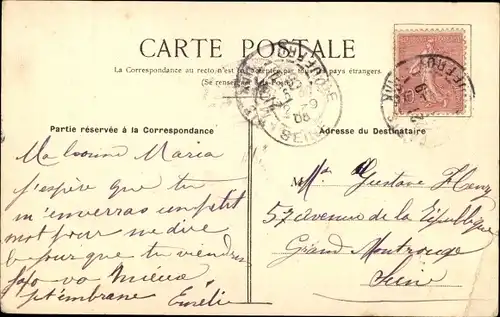 CARTE POSTALE
La Correspondance au recto n'est pas acceptée par tous les pays étrangers
(Se renseigner à la Poste)
Partie réservée à la Correspondance
Adresse du Destinataire
Ma bonne Maria
j'espère que tu
m'enverras un ptit
mot pour me dire
le jour que tu viendras
va mieux
t'embrasse Emélie
M Gustave Henry
57 avenue de la République
Grand Montrouge
Seine